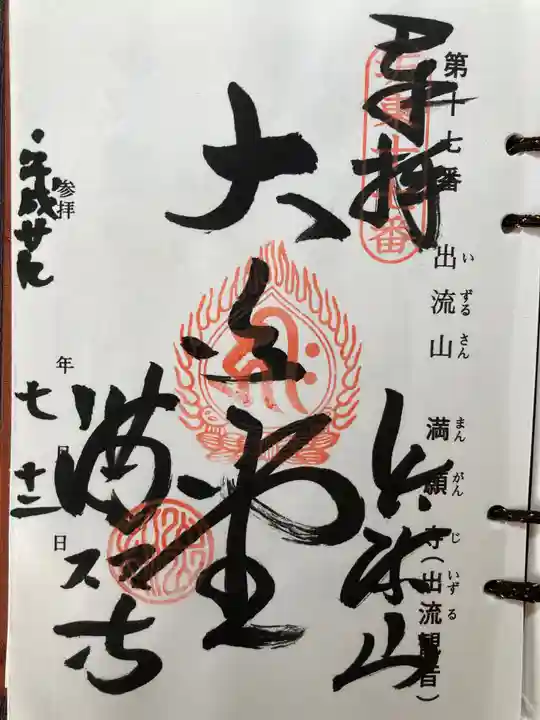 第十七番 出流山 満願寺(出流観音)
いずるさん まんがんじ いずる
奉拝 出流山
坂東十七番
大悲殿
満願寺
参拝 平成廿九年七月十二日